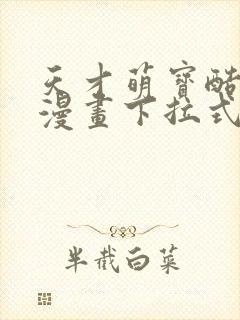 天才萌寶酷
漫畫下拉式
半截白菜